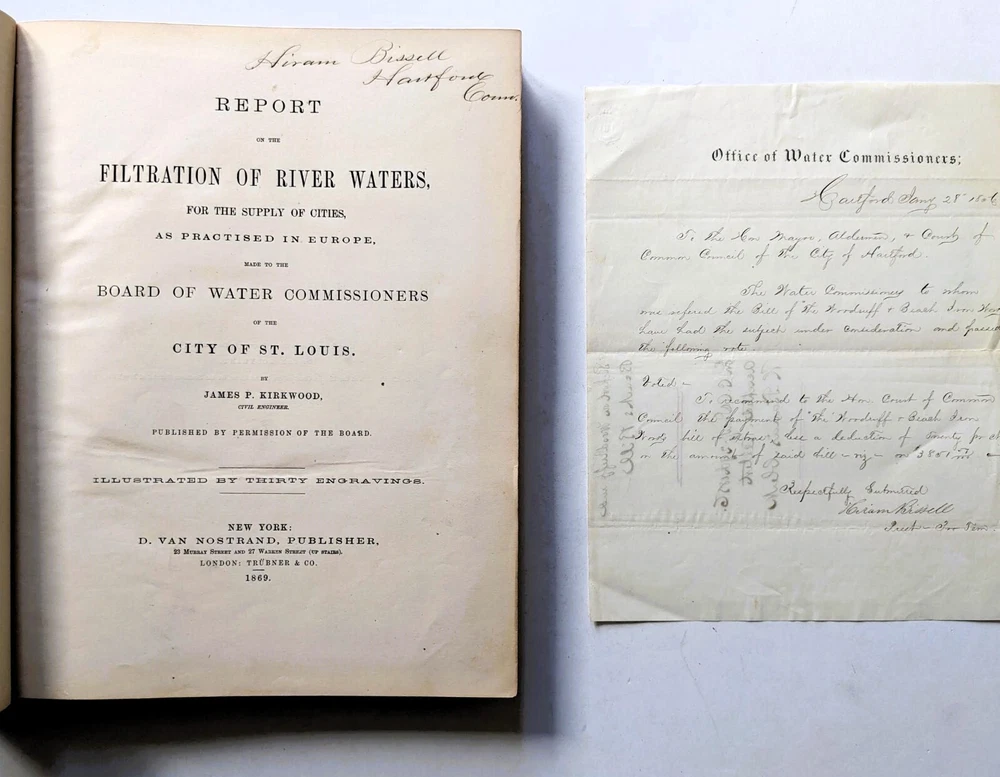 Hiram Bissell
Hartford
Conn.
REPORT
ON THE
FILTRATION OF RIVER WATERS,
FOR THE SUPPLY OF CITIES,
AS PRACTISED IN EUROPE,
MADE TO THE
BOARD OF WATER COMMISSIONERS
OF THE
CITY OF ST. LOUIS.
BY
JAMES P. KIRKWOOD,
CIVIL ENGINEER.
PUBLISHED BY PERMISSION OF THE BOARD.
ILLUSTRATED BY THIRTY ENGRAVINGS.
NEW YORK:
D. VAN NOSTRAND, PUBLISHER,
23 MURRAY STREET AND 27 WARREN STREET (UP STAIRS).
LONDON: TRÜBNER & CO.
1869.
Office of Water Commissioners;
Hartford Jany 28
To the Hon Mayor, Aldermen, & Court of
Common Council of the City of Hartford.
The Water Commissioners to whom
was refered the Bill of "The Woodruff & Beach Iron
have had the subject under consideration and passed
the following vote
Voted –
To recommend to the Hon. Court of Common
Council the payment of "The Woodruff & Beach Iron
Works bill of a deduction of Twenty pr
on the amount of said bill – viz –
Respectfully Submitted
Hiram Bissell